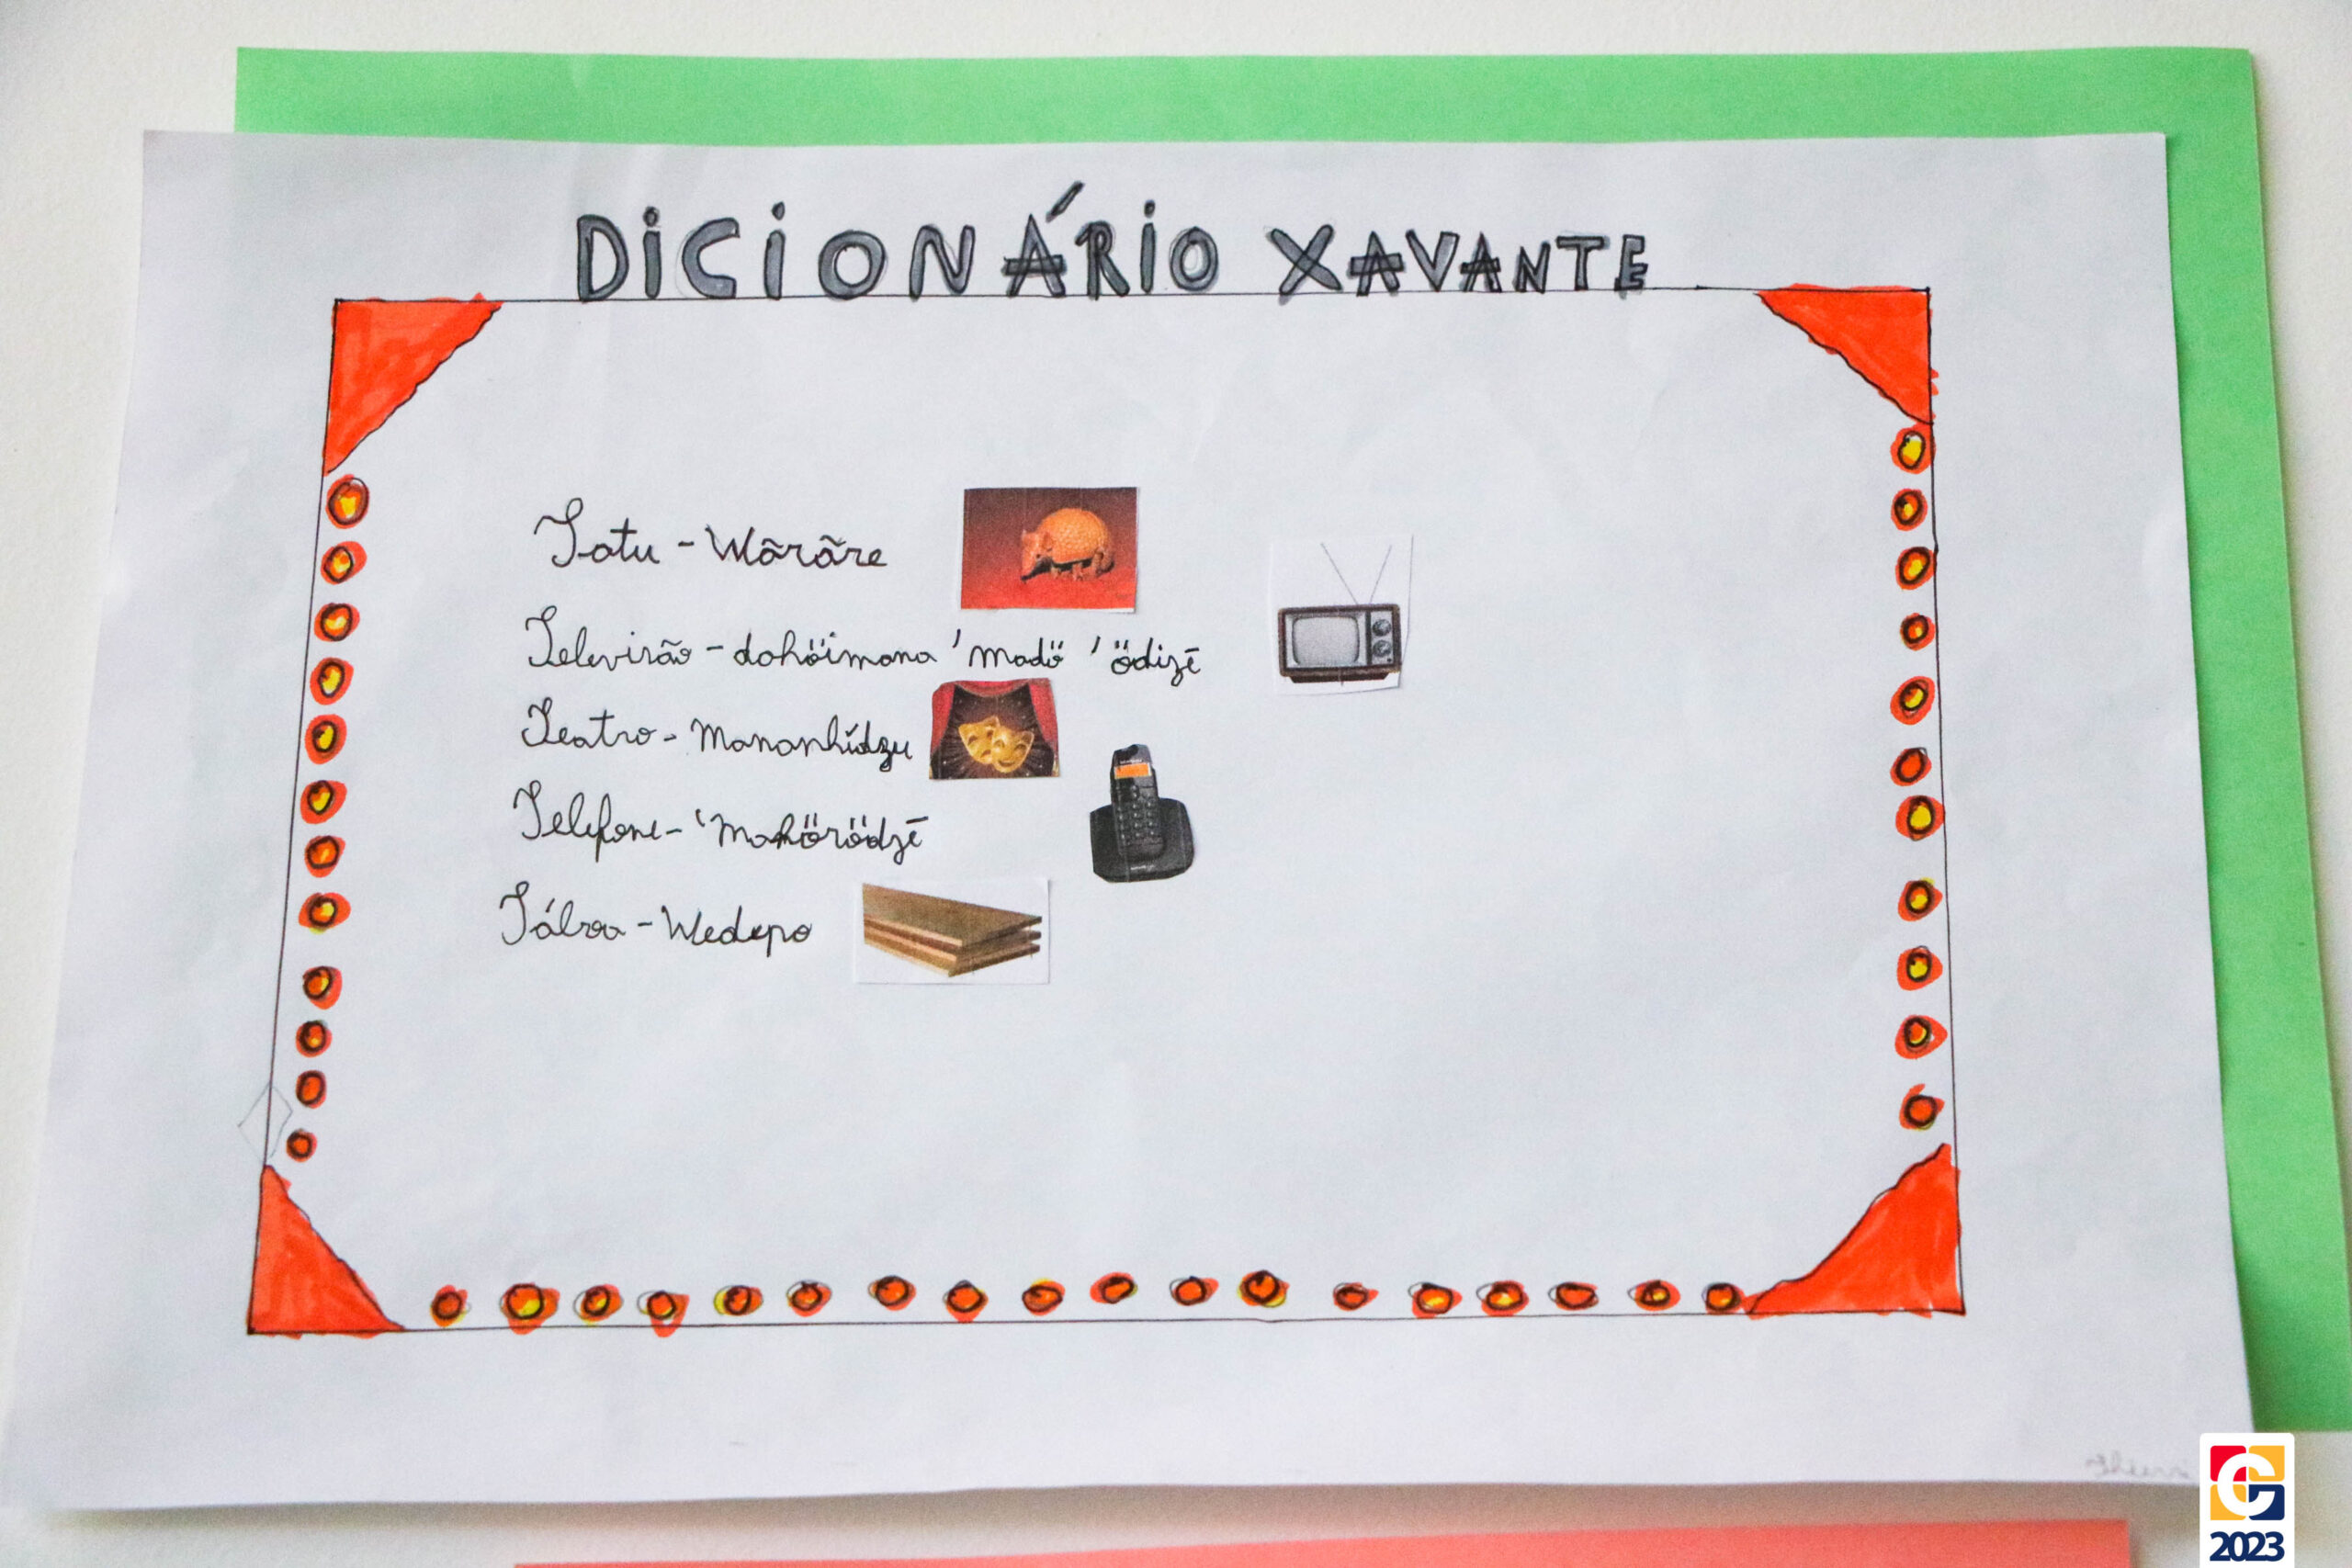 DICIONÁRIO XAVANTE
Tatu - Wãrãre
Televisão - dohöimana 'madö 'ödizé
Teatro - Mananhídzu
Telefone - 'Mahörödzé
Tábua - Wedepo
2023